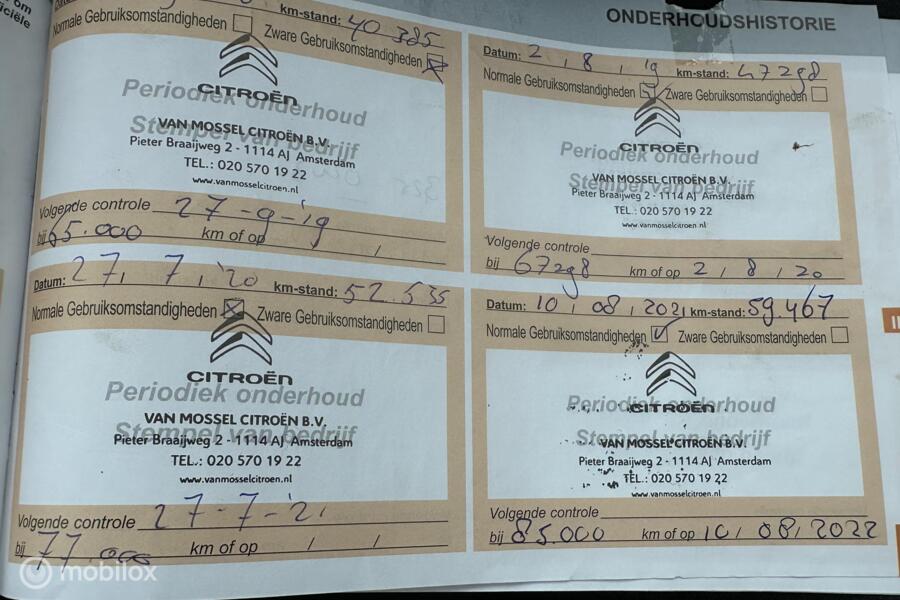 ONDERHOUDSHISTORIE
km-stand: 40 385
Normale Gebruiksomstandigheden
Zware Gebruiksomstandigheden
CITROËN
Periodiek onderhoud
Stempel van bedrijf
VAN MOSSEL CITROËN B.V.
Pieter Braaijweg 2 - 1114 AJ Amsterdam
TEL.: 020 570 19 22
www.vanmosselcitroen.nl
Volgende controle 27-9-'19
bij 65.000 km of op / /
Datum: 2 / 8 / 19 km-stand: 47298
Normale Gebruiksomstandigheden Zware Gebruiksomstandigheden
CITROËN
Periodiek onderhoud
Stempel van bedrijf
VAN MOSSEL CITROËN B.V.
Pieter Braaijweg 2 - 1114 AJ Amsterdam
TEL.: 020 570 19 22
www.vanmosselcitroen.nl
Volgende controle
bij 67298 km of op 2 / 8 / 20
Datum: 27 / 7 / '20 km-stand: 52.535
Normale Gebruiksomstandigheden Zware Gebruiksomstandigheden
CITROËN
Periodiek onderhoud
Stempel van bedrijf
VAN MOSSEL CITROËN B.V.
Pieter Braaijweg 2 - 1114 AJ Amsterdam
TEL.: 020 570 19 22
www.vanmosselcitroen.nl
Volgende controle 27-7-'21
bij 77.000 km of op / /
Datum: 10 / 08 / 2021 km-stand: 59.467
Normale Gebruiksomstandigheden Zware Gebruiksomstandigheden
CITROËN
Periodiek onderhoud
Stempel van bedrijf
VAN MOSSEL CITROËN B.V.
Pieter Braaijweg 2 - 1114 AJ Amsterdam
TEL.: 020 570 19 22
www.vanmosselcitroen.nl
Volgende controle
bij 85.000 km of op 10 / 08 / 2022
mobilox